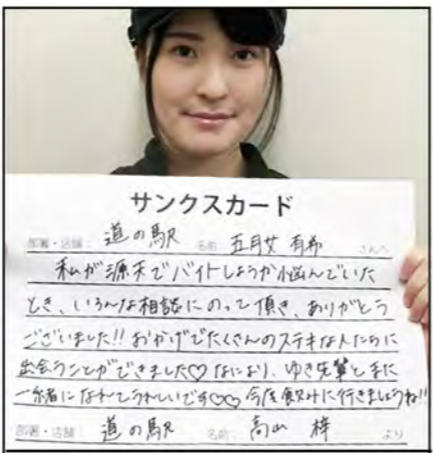 サンクスカード
部署・店舗： 道の駅 名前 五月女 有希 さんへ
私が源天でバイトしようか悩んでいた
とき、いろんな相談にのって頂き、ありがとう
ございました!! おかげでたくさんのステキな人たちに
出会うことができました♡ なにより、ゆき先輩とまた
一緒になれてうれしいです♡♡ 今度飲みに行きましょうね!!
部署・店舗： 道の駅 名前 高山 梓 より